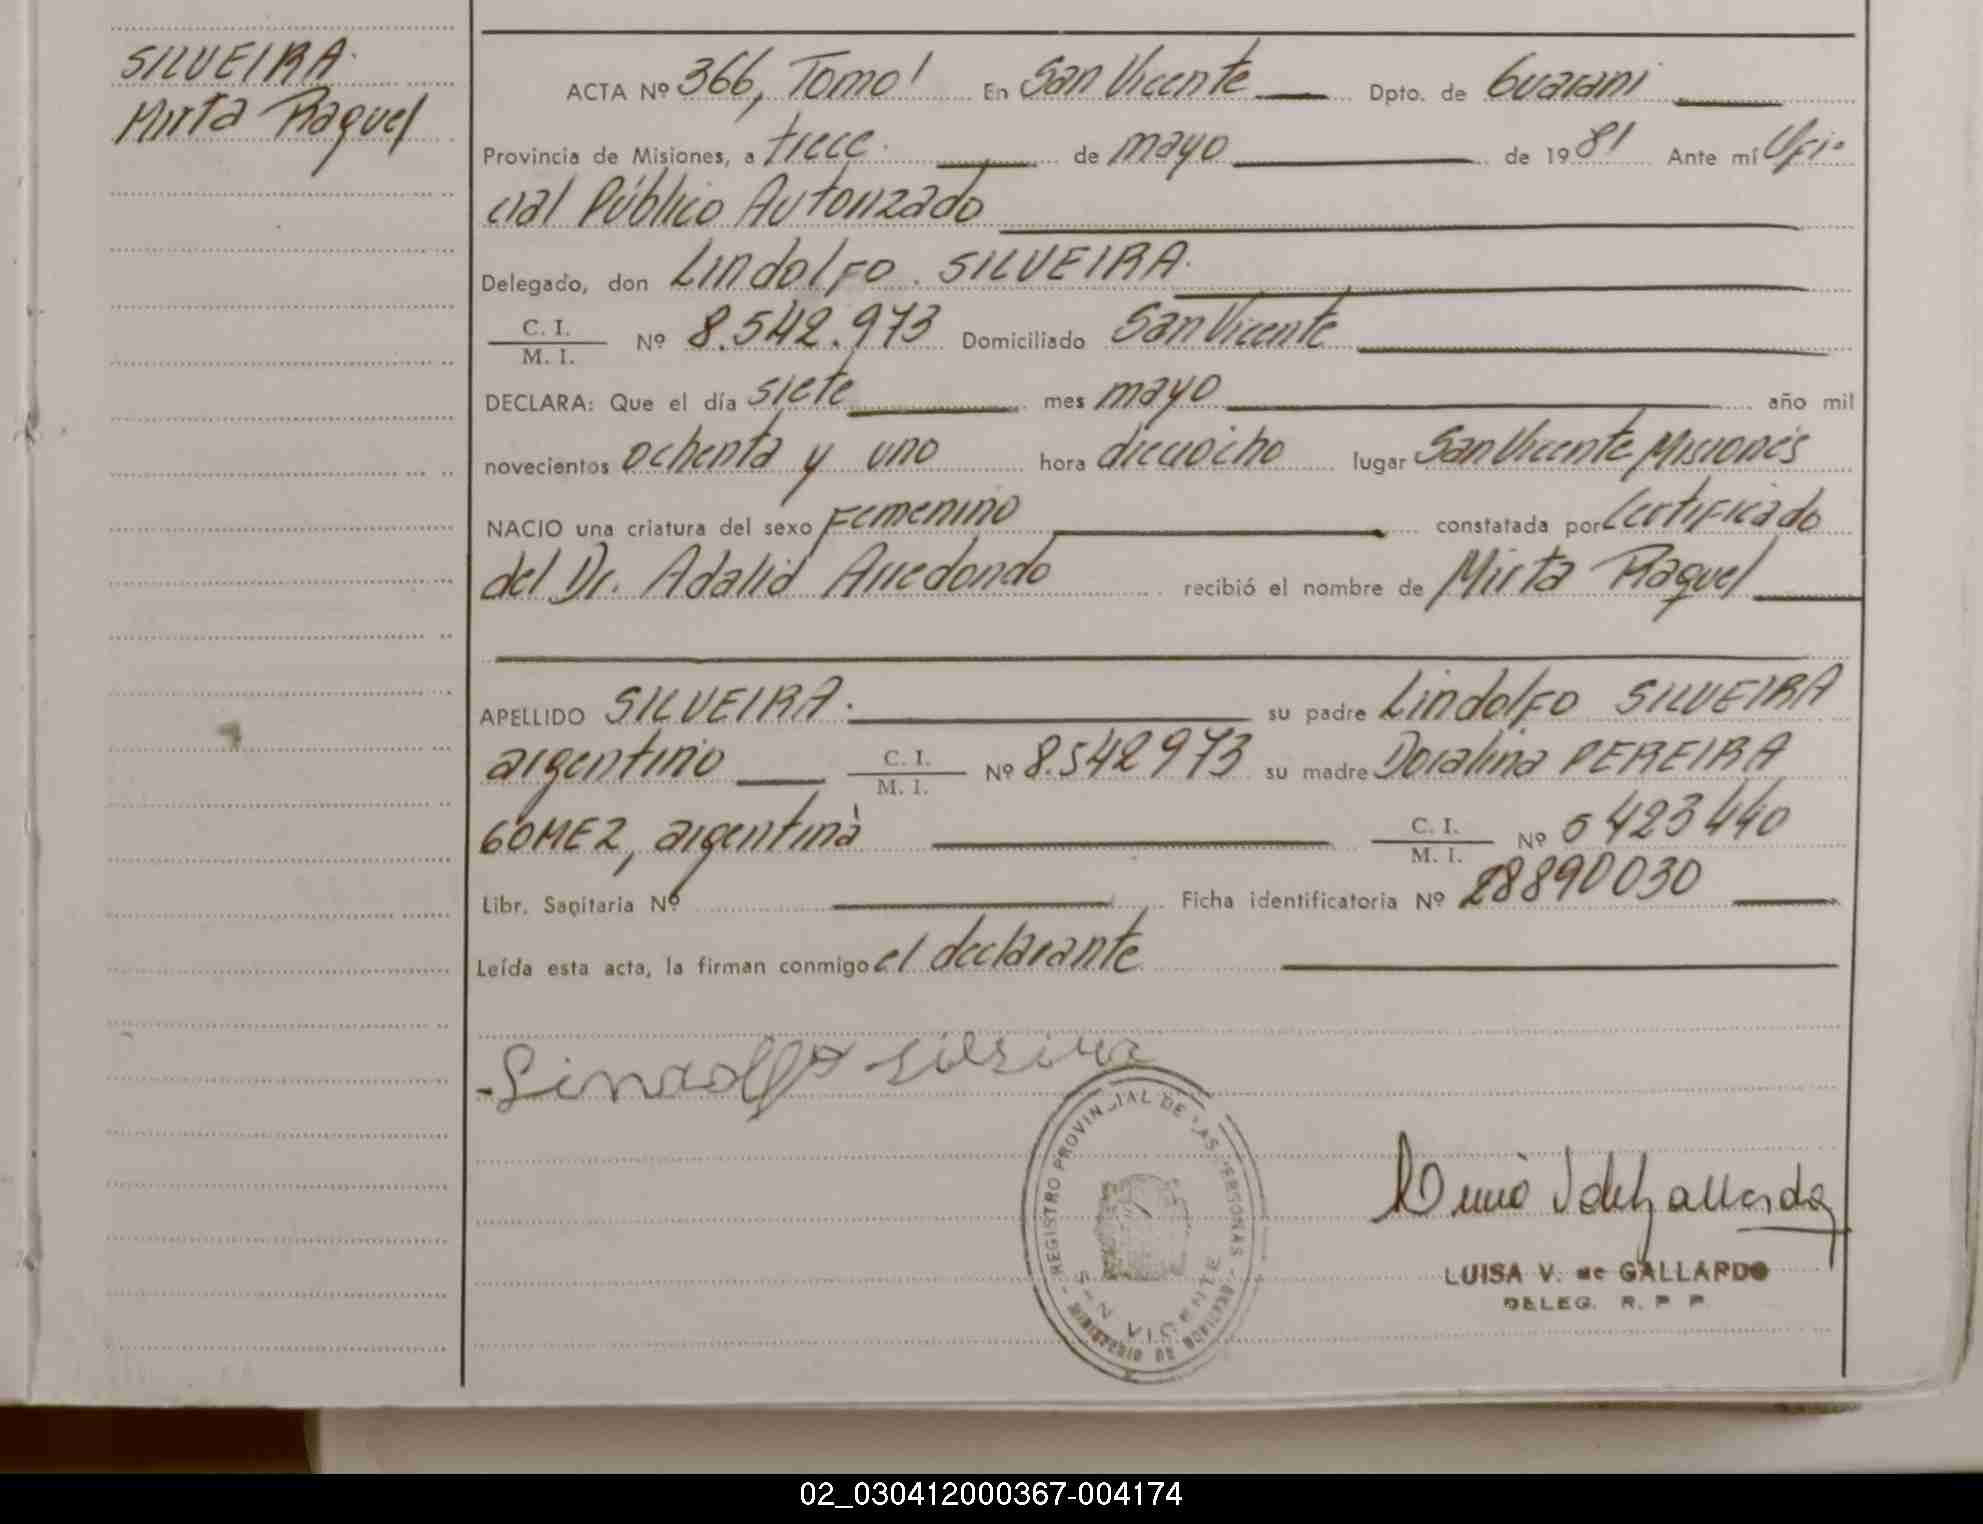 SILVEIRA
Mirta Raquel
ACTA Nº 366, Tomo I En San Vicente Dpto. de Guarani
Provincia de Misiones, a trece de mayo de 1981 Ante mí Ofi-
cial Público Autorizado
Delegado, don Lindolfo SILVEIRA
C. I.
M. I. Nº 8.542.973 Domiciliado San Vicente
DECLARA: Que el día siete mes mayo año mil
novecientos ochenta y uno hora dieciocho lugar San Vicente Misiones
NACIO una criatura del sexo Femenino constatada por Certificado
del Dr. Adalid Arredondo recibió el nombre de Mirta Raquel
APELLIDO SILVEIRA su padre Lindolfo SILVEIRA
argentino C. I.
M. I. Nº 8.542973 su madre Doralina PEREIRA
GOMEZ, argentina C. I.
M. I. Nº 6423440
Libr. Sanitaria Nº Ficha identificatoria Nº 28890030
Leída esta acta, la firman conmigo el declarante
Lindolfo Silveira
REGISTRO PROVINCIAL DE LAS PERSONAS
SAN VICENTE
LUISA V. de GALLARDO
DELEG. R. P. P.
02_030412000367-004174